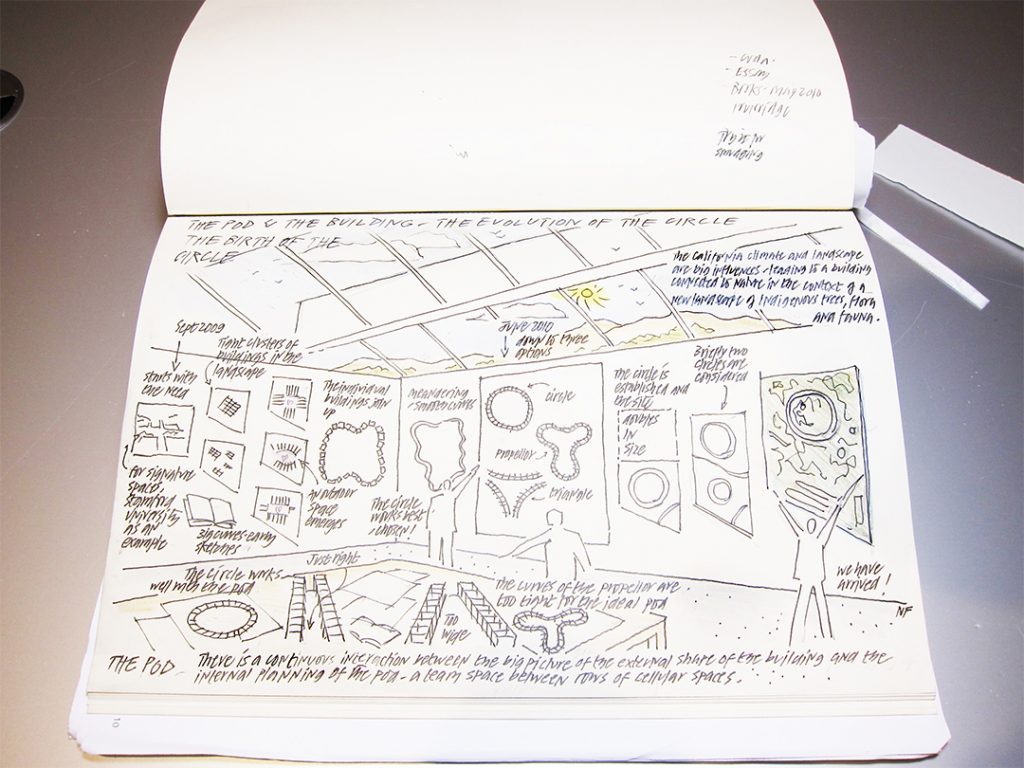 - ESSAY
- BOOKS - MAY 2010
THE POD & THE BUILDING - THE EVOLUTION OF THE CIRCLE
THE BIRTH OF THE
CIRCLE
The California climate and landscape
are big influences - leading to a building
connected to nature in the context of a
new landscape of indigenous trees, flora
and fauna.
Sept 2009
starts with
the need
for signature
spaces
Stanford
university
as an
example
Tight clusters of
buildings in the
landscape
sketches
The individual
buildings join
up
An outdoor
space
emerges
meandering
The circle
works best
- chosen!
June 2010
down to three
options
circle
propellor
triangle
The circle is
established and
the site
doubles
in
size
Briefly two
circles are
considered
we have
arrived!
NF
The Circle works
well with the pod
Just right
Too
wide
The curves of the propellor are
too tight for the ideal pod
THE POD - There is a continuous interaction between the big picture of the external shape of the building and the
internal planning of the pod - a team space between rows of cellular spaces.
10